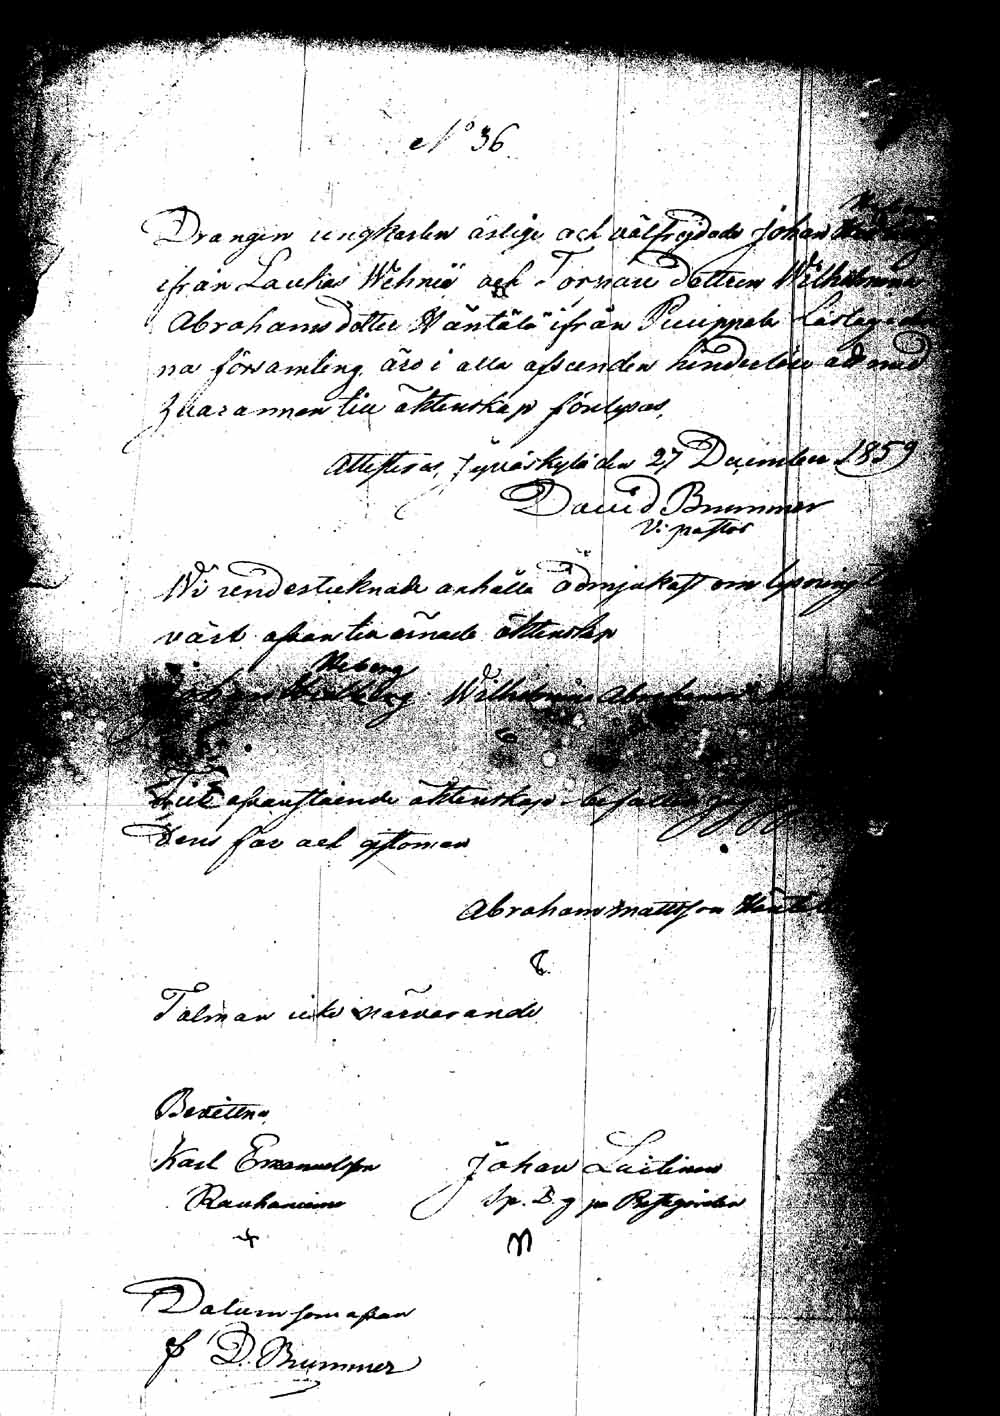 No 36
Drängen ungkarlen ärlige och välfrejdade Johan
ifrån Laukas Wehniä och Tornare dottren Wilhelmina
Abrahamsdotter Häntälä ifrån Puuppola
na församling, äro i alla afseenden hinderlöse att med
hvarannan till äktenskap förelysas,
Attesteras, Jyväskylä den 27 December 1859
David Brummer
V: pastor
Wi undertecknade anhålla ödmjukast om lysning
vårt ofvan till ernade äktenskap
Neberg
Johan Wilhelmina Abrahams
Till ofvanstående äktenskap
Dens far och giftoman
Abraham Mattsson
Talman icke närvarande
Bevittna,
Karl Emanuelson Johan Laitinen
Rauhaniemi på Prestgården
Datum som ofvan
D. Brummer